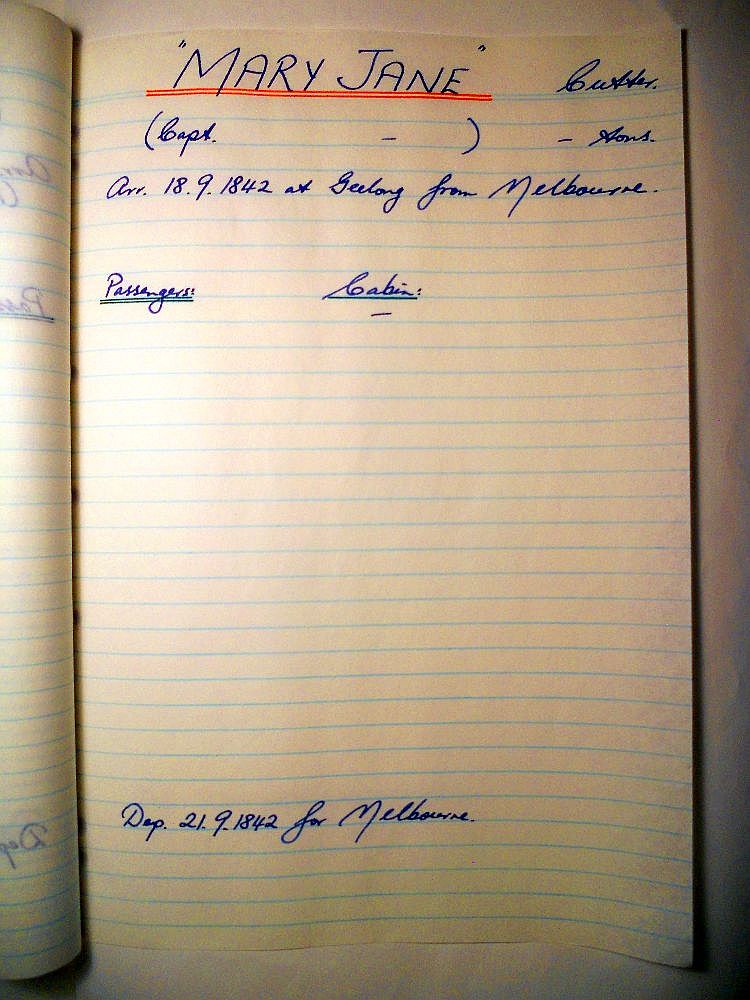 "MARY JANE" Cutter.
(Capt. - ) - tons.
Arr. 18.9.1842 at Geelong from Melbourne.
Passengers: Cabin:
-
Dep. 21.9.1842 for Melbourne.